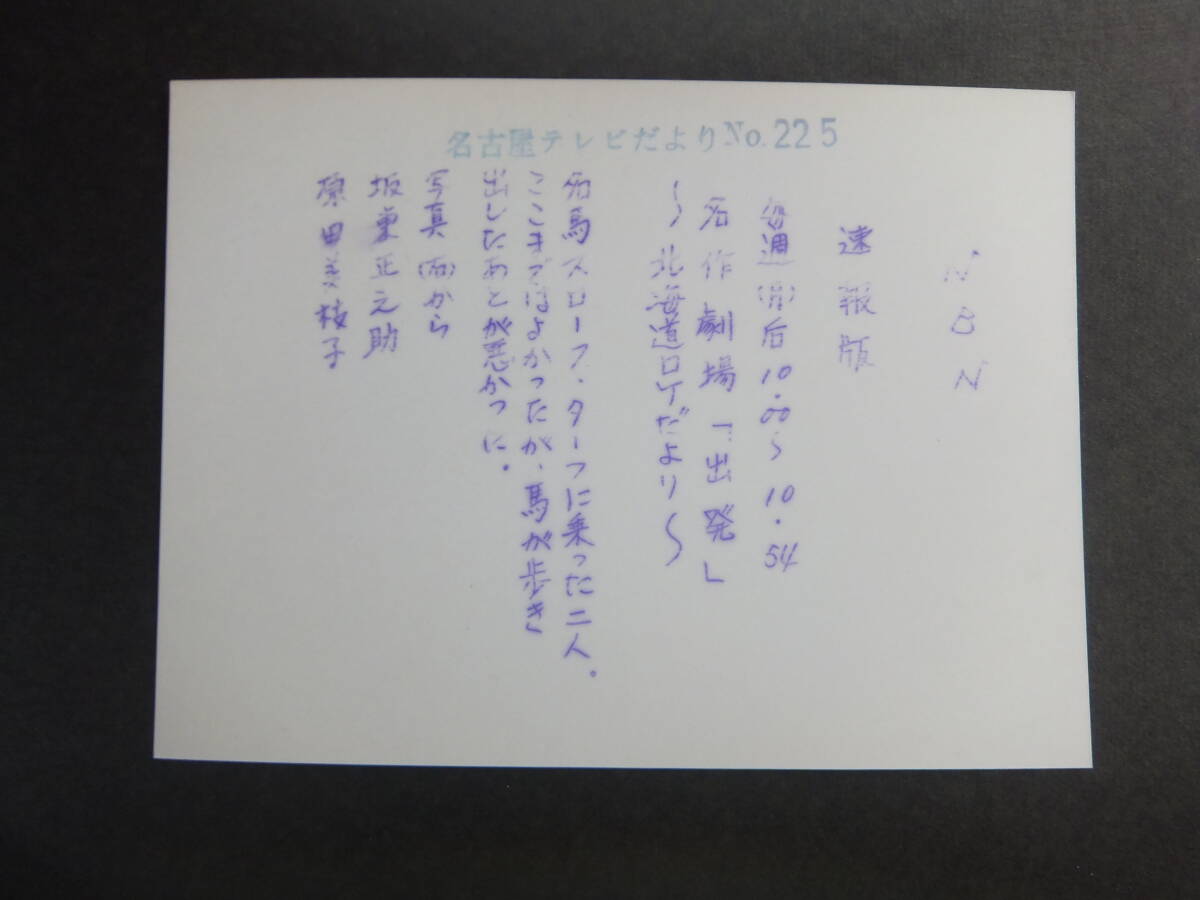 名古屋テレビだよりNo.225
NBN
速報版
毎週(月)后10.00〜10.54
名作劇場「出発」
〜北海道ロケだより〜
名馬スロープ・ターフに乗った二人。
ここまではよかったが、馬が歩き
出したあとが悪かった。
写真(右)から
坂東正之助
原田美枝子